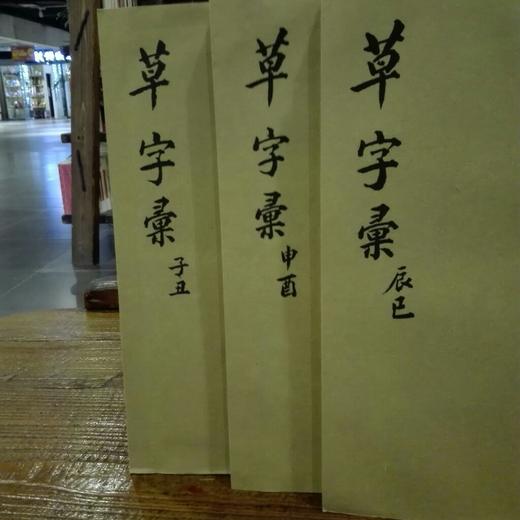 草字彙
子丑
草字彙
申酉
草字彙
辰巳